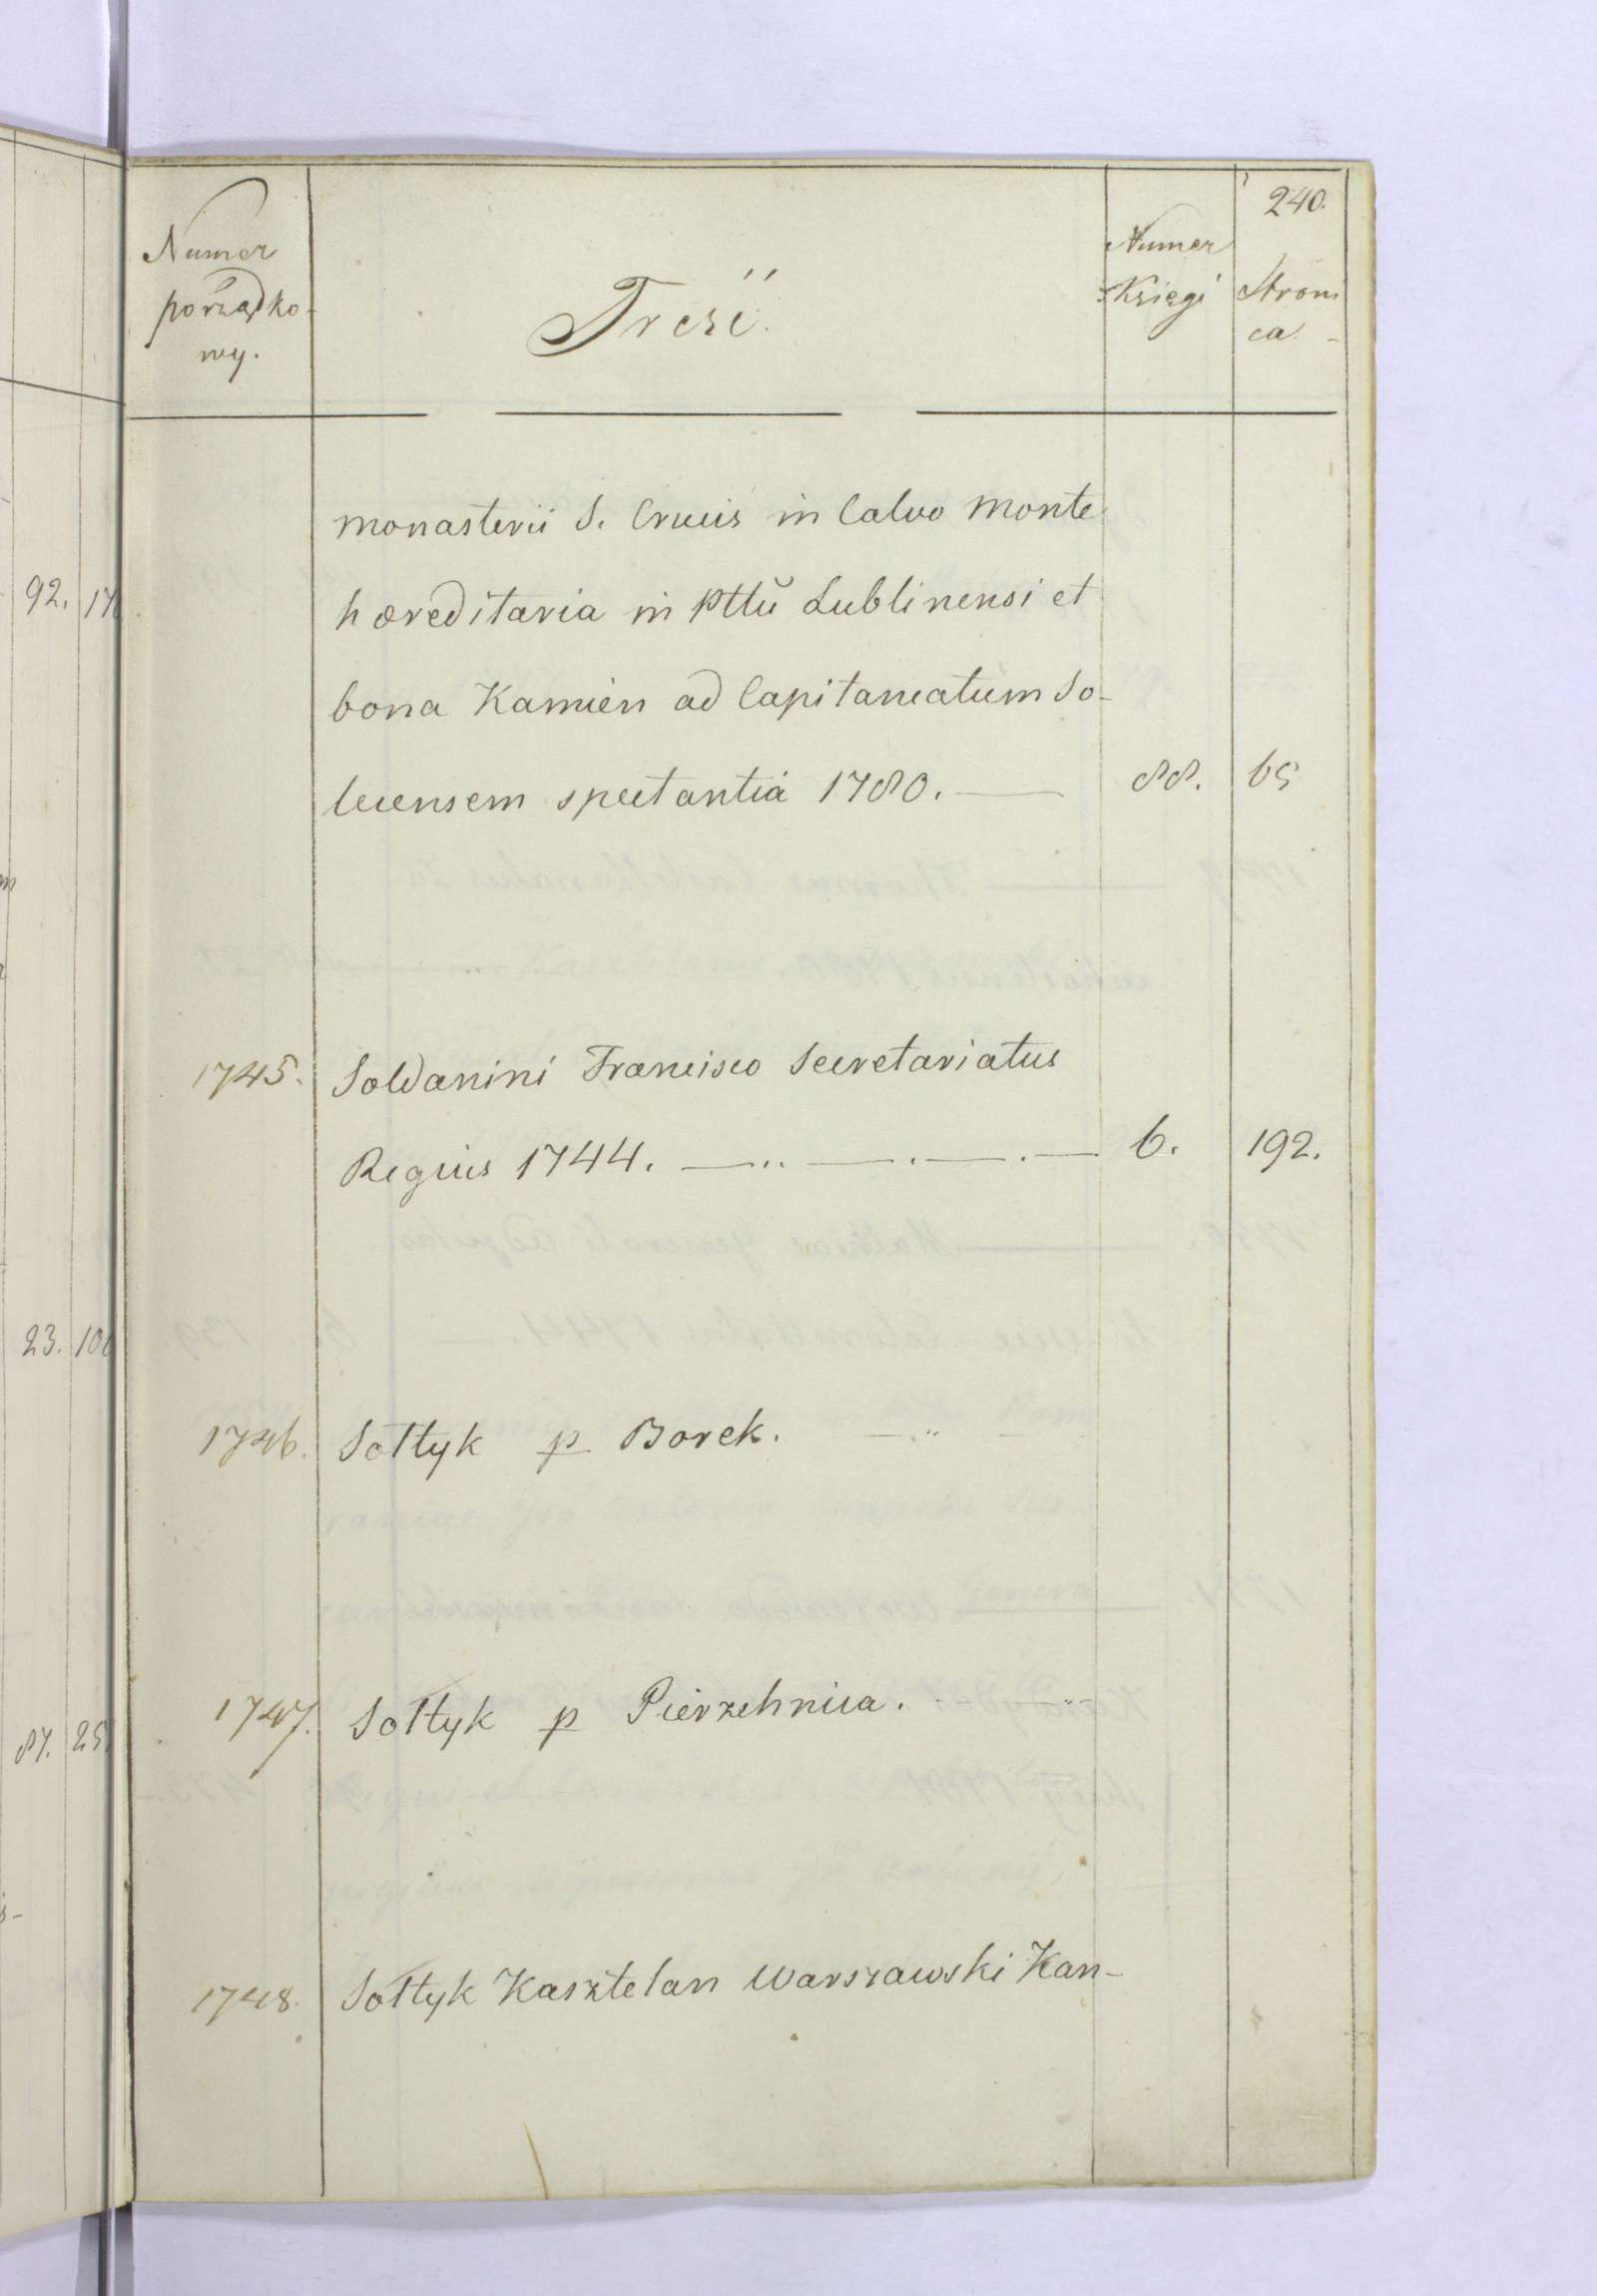 240.
Numer porządko- wy.
Treść.
Numer Księgi
Stroni ca -
monasterii S. Crucis in Calvo monte
hæreditaria in pttũ Lublinensi et
bona Kamień ad Capitaneatum So-
lecensem spectantia 1780. — 88. 65
1745. Soldanini Francisco Secretariatus
Regius 1744. —..—.—.— 6. 192.
1746. Sołtyk p Borek. —..
1747. Sołtyk p Pierzchnica. . —..-
1748. Sołtyk Kasztelan Warszawski Kan-
92. 17
23. 10
87. 25